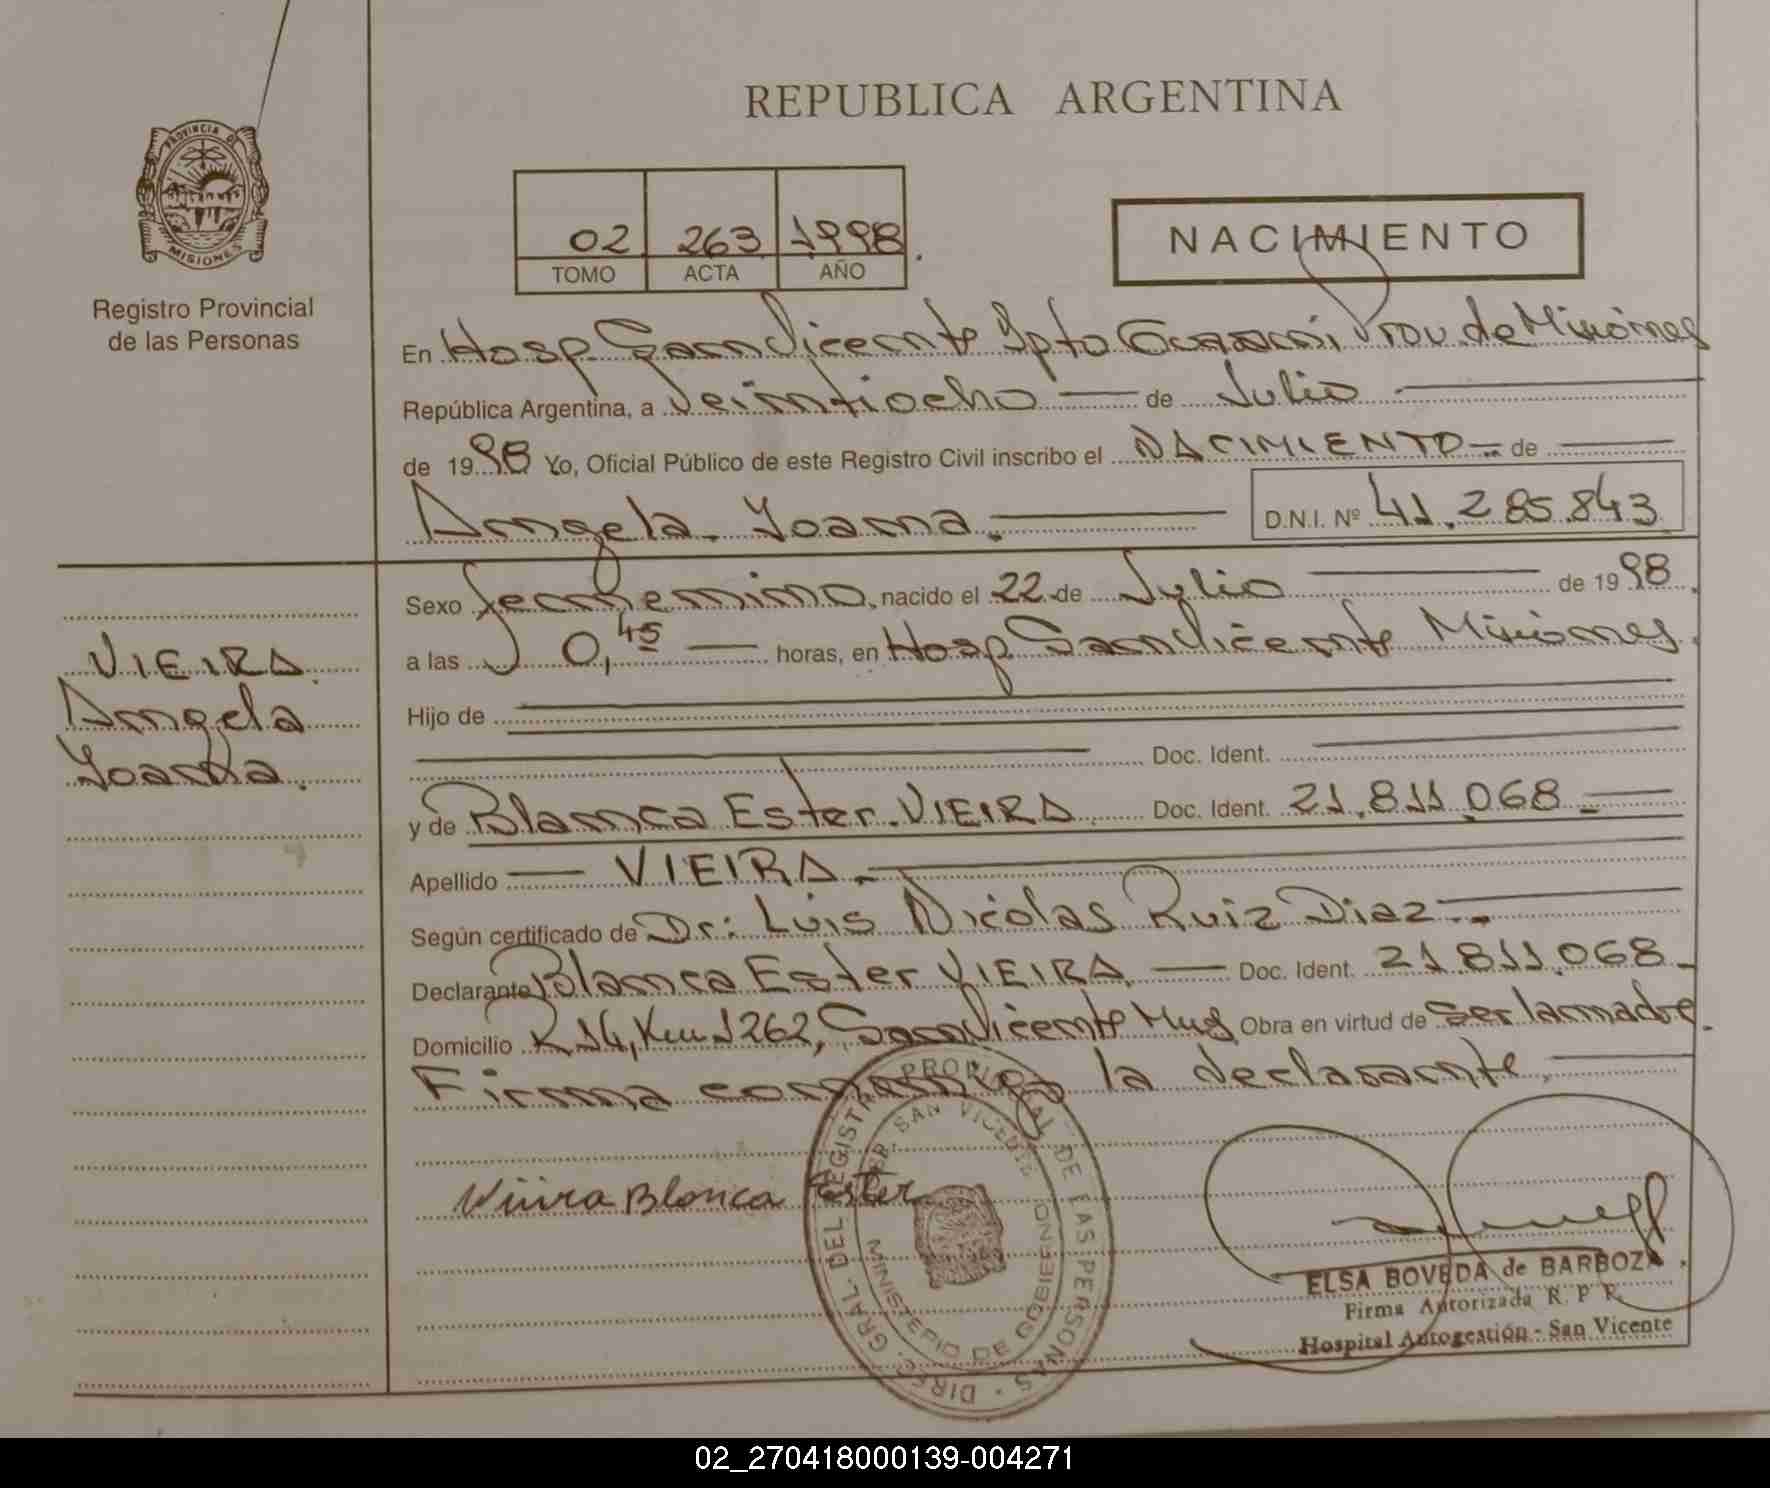 REPUBLICA ARGENTINA
PROVINCIA DE
MISIONES
Registro Provincial
de las Personas
02 263 1998
TOMO ACTA AÑO
NACIMIENTO
En Hosp. San Vicente Dpto Guarani Prov. de Misiones
República Argentina, a Veintiocho de Julio
de 1998 Yo, Oficial Público de este Registro Civil inscribo el NACIMIENTO de
Angela Yoana.
D.N.I. Nº 41.285.843
Sexo femenino, nacido el 22 de Julio de 1998
a las 0,45 horas, en Hosp San Vicente Misiones.
Hijo de
Doc. Ident.
y de Blanca Ester VIEIRA Doc. Ident. 21.811.068
Apellido VIEIRA
Según certificado de Dr: Luis Nicolas Ruiz Diaz
Declarante Blanca Ester VIEIRA, Doc. Ident. 21.811.068
Domicilio R 14, Km 1262, San Vicente Mnes Obra en virtud de ser la madre.
Firma conmigo la declarante.
VIEIRA
Angela
Yoana.
Vieira Blanca Ester
DIREC. GRAL. DEL REGISTRO PROVINCIAL DE LAS PERSONAS
SAN VICENTE
MINISTERIO DE GOBIERNO
ELSA BOVEDA de BARBOZA
Firma Autorizada R. P. P.
Hospital Autogestión - San Vicente
02_270418000139-004271